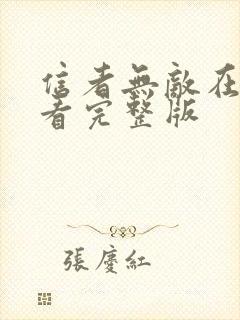 信者無敵在
看完整版
張慶紅